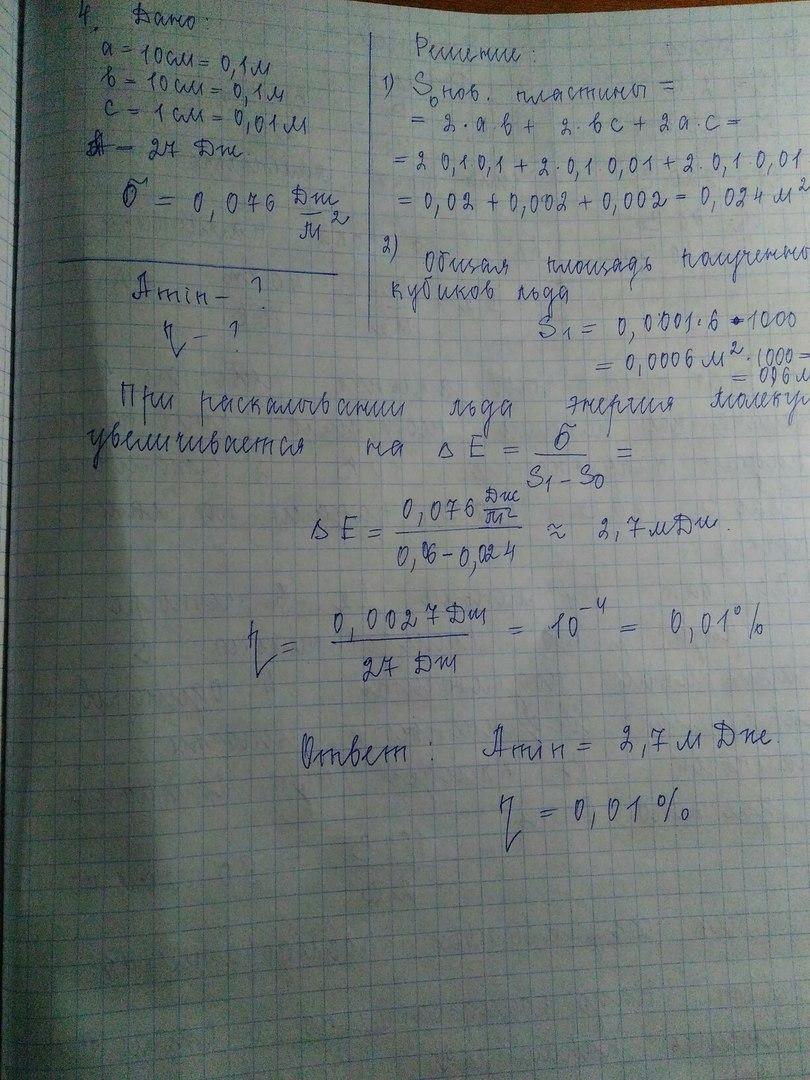 4. Дано:
a = 10 см = 0,1 м
b = 10 см = 0,1 м
c = 1 см = 0,01 м
A = 27 Дж
σ = 0,076 Дж/м²
Amin - ?
η - ?
Решение:
1) S₀ пов. пластины =
= 2·ab + 2·bc + 2a·c =
= 2 0,1 0,1 + 2·0,1 0,01 + 2·0,1·0,01
= 0,02 + 0,002 + 0,002 = 0,024 м²
2) Общая площадь
кубиков льда
S₁ = 0,0001·6·1000
= 0,0006 м²·1000 =
При раскалывании льда энергия
увеличивается на ΔE = σ/(S₁ - S₀) =
ΔE = 0,076 Дж/м² / (0,06 - 0,024) ≈ 2,7 мДж.
η = 0,0027 Дж / 27 Дж = 10⁻⁴ = 0,01%
Ответ: Amin = 2,7 м Дж.
η = 0,01%